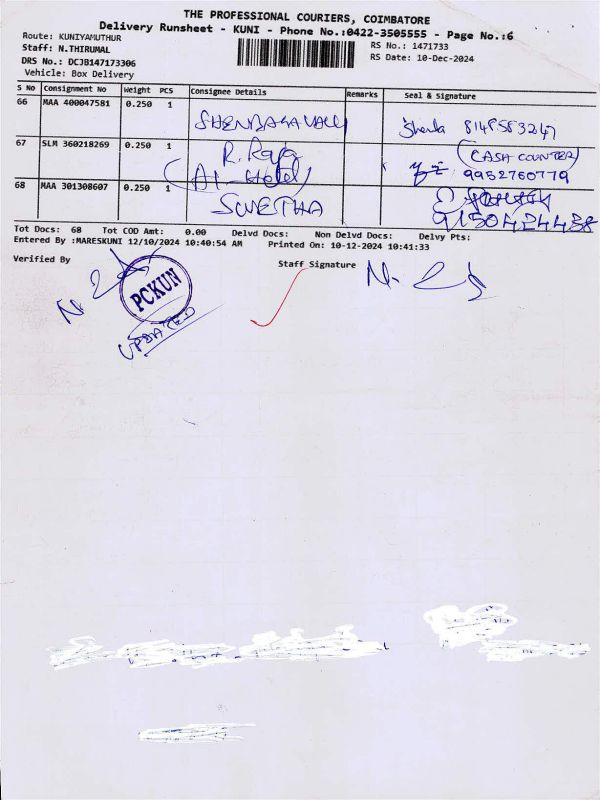 THE PROFESSIONAL COURIERS, COIMBATORE
Delivery Runsheet - KUNI - Phone No.:0422-3505555 - Page No.:6
Route: KUNIYAMUTHUR
RS No.: 1471733
Staff: N.THIRUMAL
RS Date: 10-Dec-2024
DRS No.: DCJB147173306
Vehicle: Box Delivery
S No Consignment No Weight PCS Consignee Details Remarks Seal & Signature
66 MAA 400047581 0.250 1 SHENBAGAVALLI 8148583247
67 SLM 360218269 0.250 1 R. Raja (CASH COUNTER)
(A1 Hotel) 9952760779
68 MAA 301308607 0.250 1 SWETHA 9150424438
Tot Docs: 68 Tot COD Amt: 0.00 Delvd Docs: Non Delvd Docs: Delvy Pts:
Entered By :MARESKUNI 12/10/2024 10:40:54 AM Printed On: 10-12-2024 10:41:33
Verified By Staff Signature
PCKUN
UPDATED